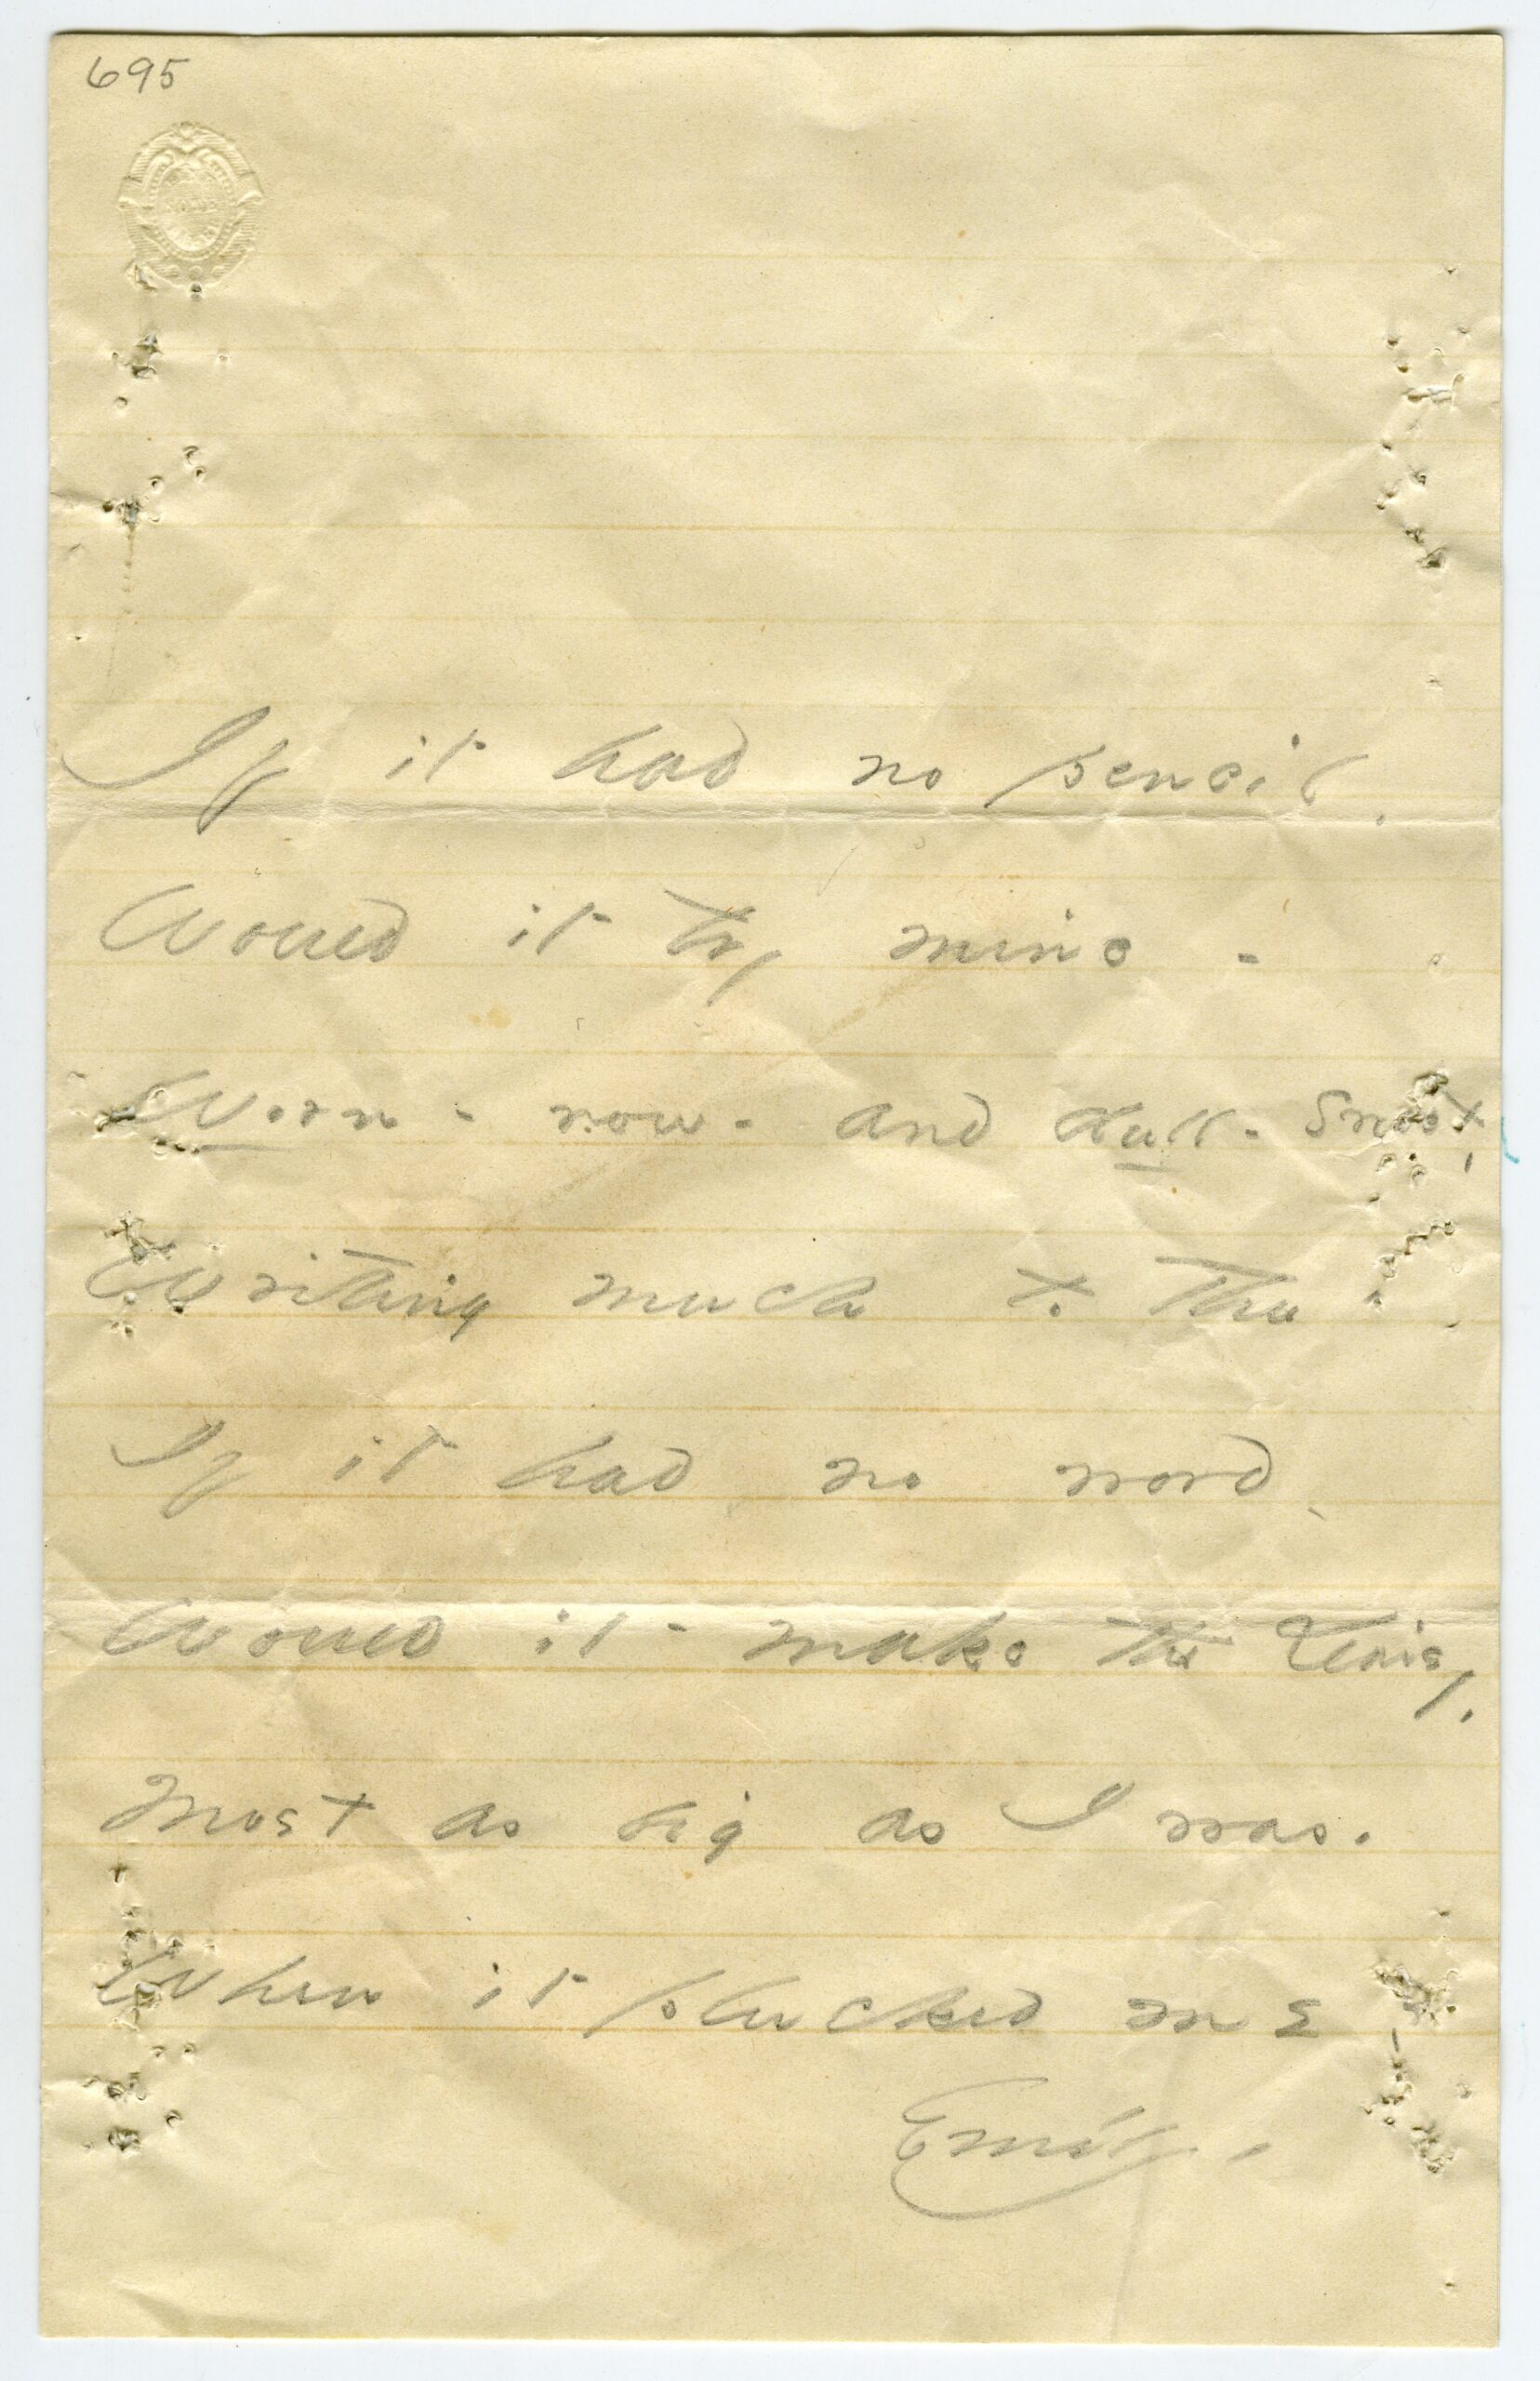 695
If it had no pencil,
Would it try mine -
Worn - now - and dull - sweet,
Writing much to thee.
If it had no word -
Would it - make the Daisy,
Most as big as I was -
When it plucked me
Emily -